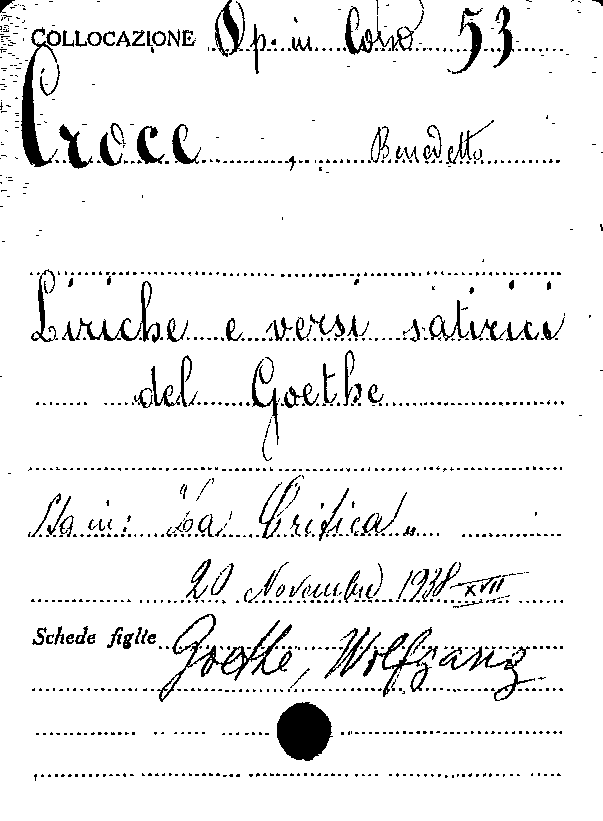 COLLOCAZIONE Op. in Corso 53
Croce, Benedetto
Liriche e versi satirici
del Goethe
Sta in: "La Critica„
20 Novembre 1938 XVII
Schede figlie Goethe, Wolfgang